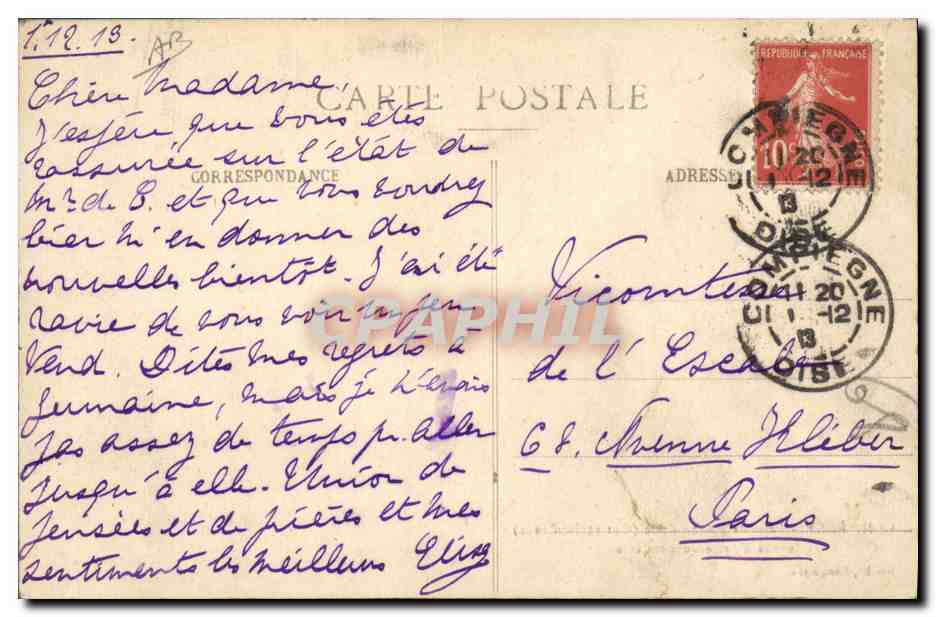 1.12.13.
AB
Chère Madame,
CARTE POSTALE
J'espère que vous êtes
rassurée sur l'état de
CORRESPONDANCE
Mr. de C. et que vous voudrez
bien m'en donner des
nouvelles bientôt. J'ai été
ravie de vous voir un peu
Vend. Dites mes regrets à
Germaine, mais je n'avais
pas assez de temps pr. aller
jusqu'à elle. Union de
pensées et de prières et mes
sentiments les meilleurs
ADRESSE
Vicomtesse
de l'Escale
68. Avenue Kléber
Paris
REPUBLIQUE FRANÇAISE
10
COMPIEGNE
11 20
1 -12
13
OISE
COMPIEGNE
11 20
1 -12
13
OISE
CPAPHIL